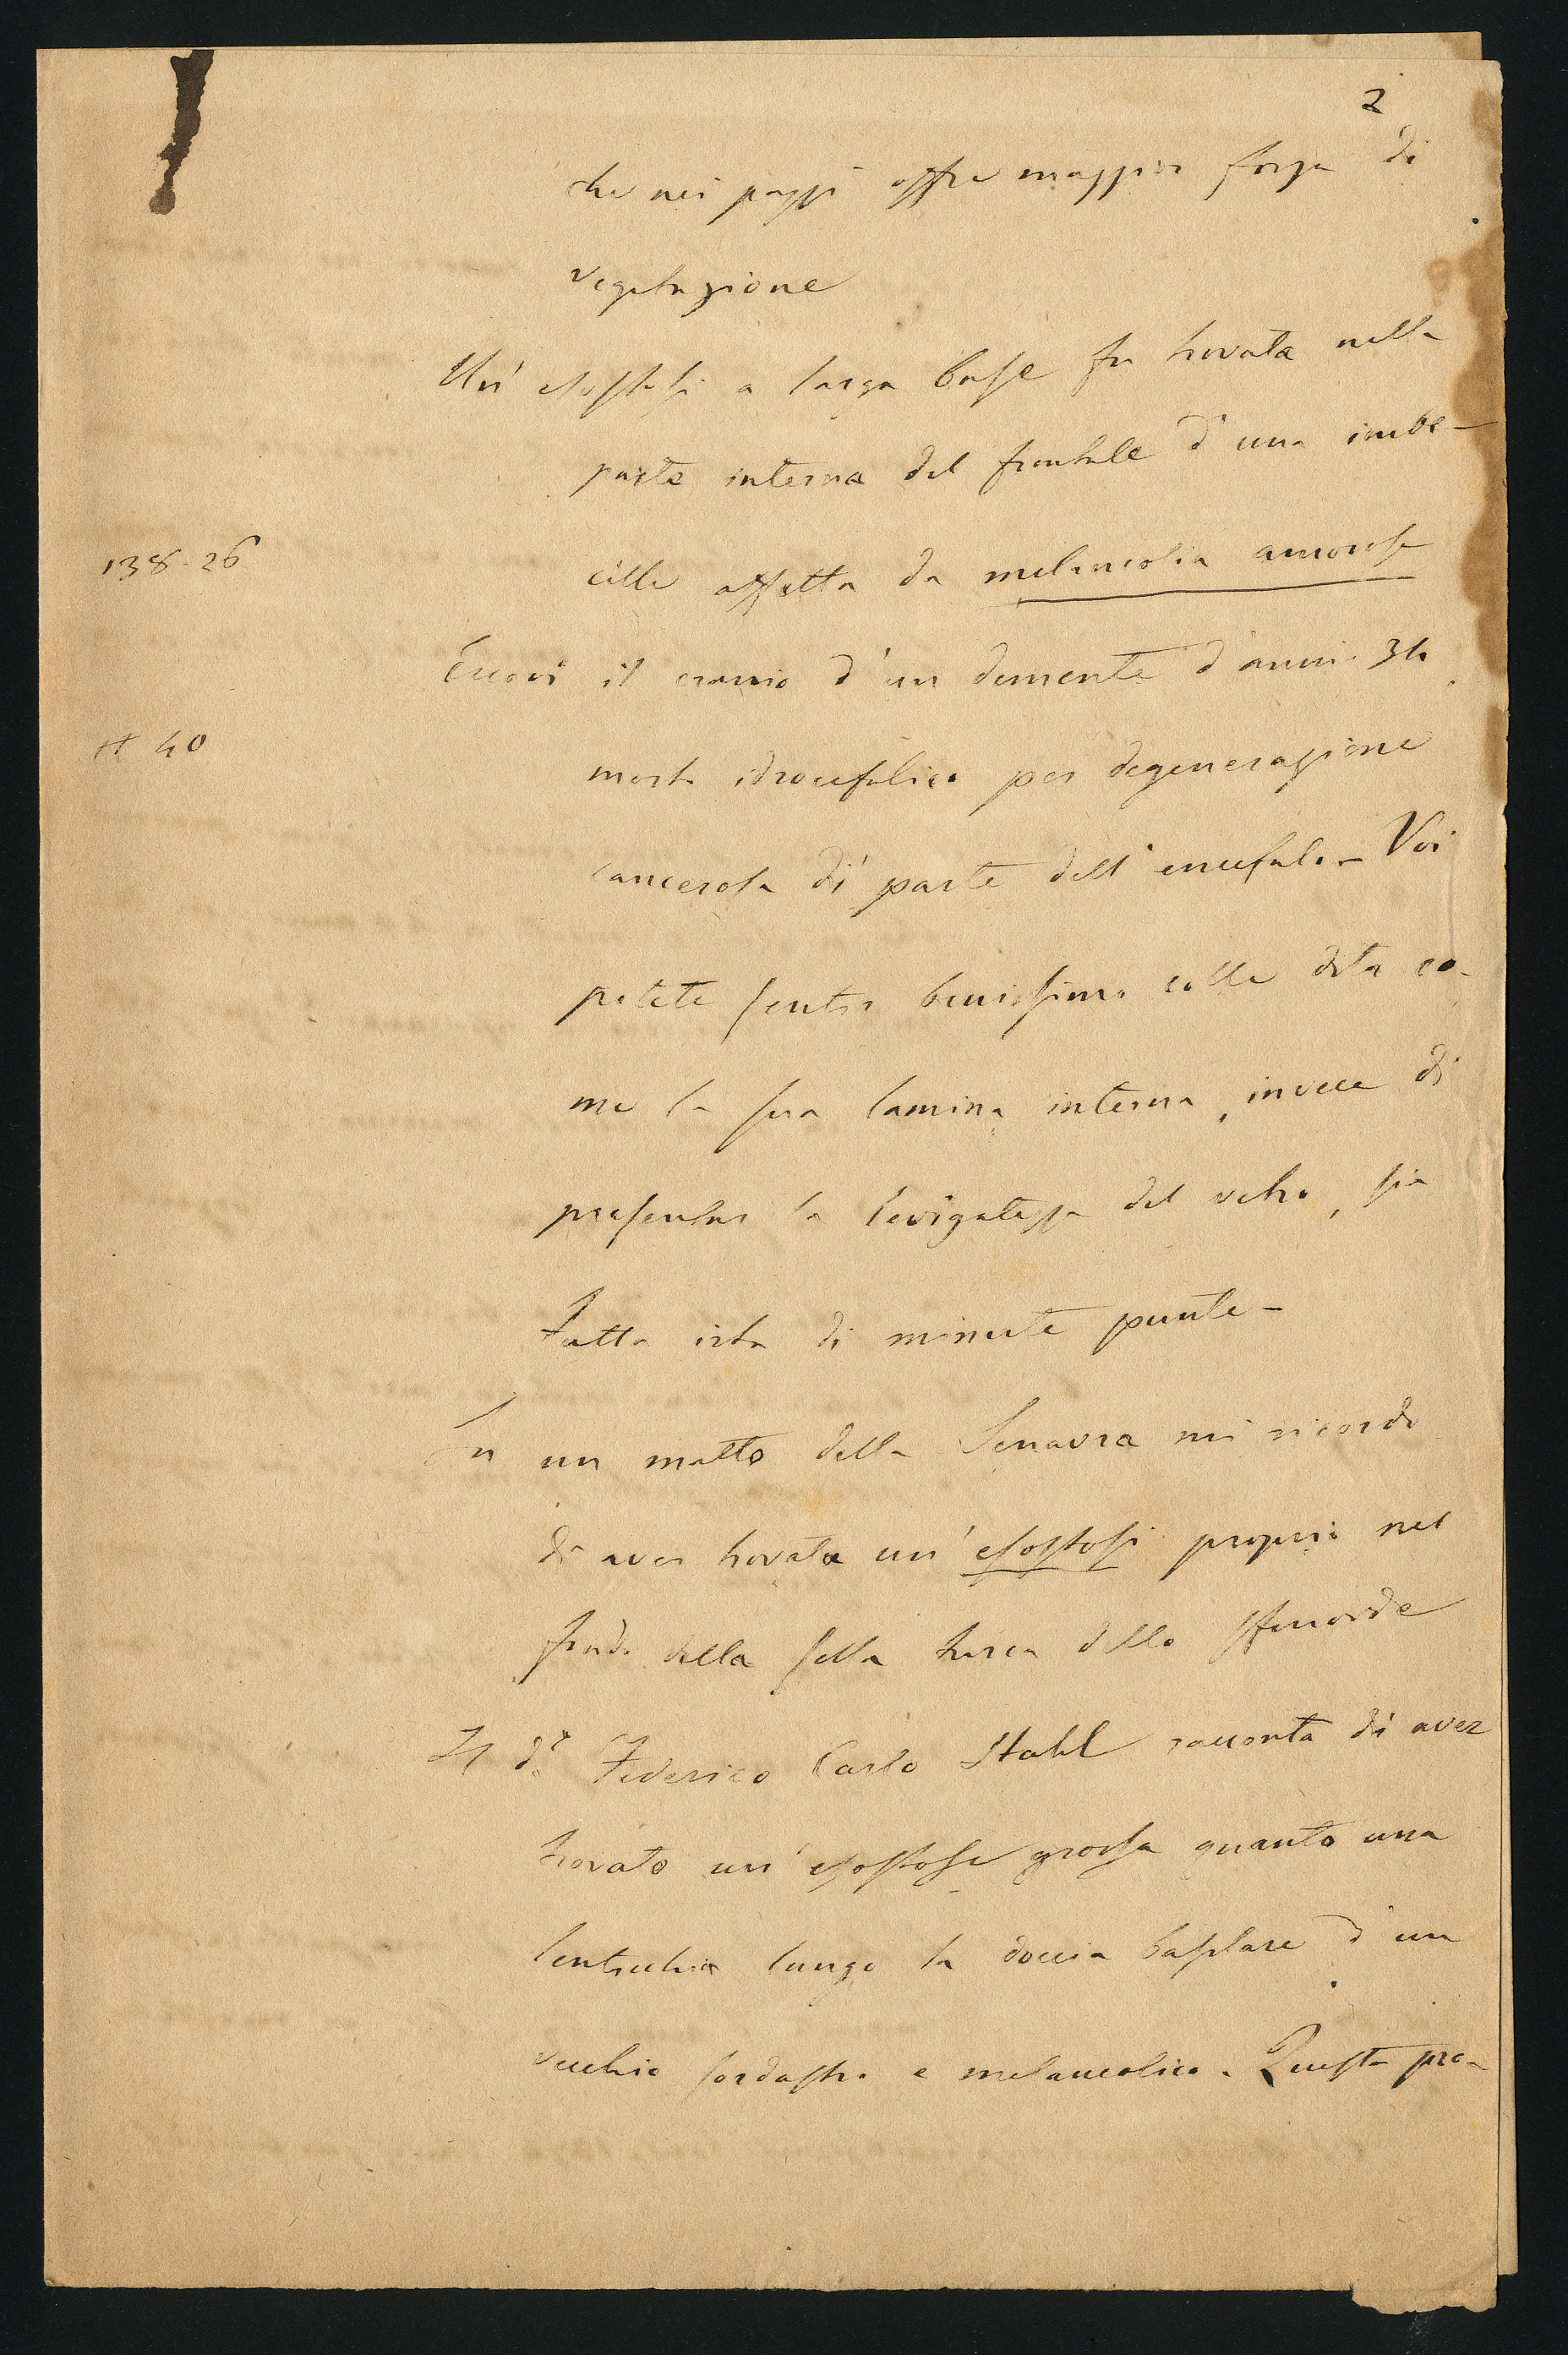 2
che nei pazzi offre maggior forza di
vegetazione
Un' esostosi a larga base fu trovata nella
parte interna del frontale d'una imbe-
138-26
cille affetta da melanconia amorosa
Eccovi il cranio d'un demente d'anni 34
# 40
morto idrocefalico per degenerazione
cancerosa di parte dell'encefalo - Voi
potete sentir benissimo colle dita co-
me la sua lamina interna, invece di
presentar la levigatezza del vetro, sia
tutta irta di minute punte -
In un matto della Senavra mi ricordo
di aver trovata un' esostosi proprio nel
fondo della sella turca dello sfenoide
Il dr. Federico Carlo Stahl racconta di aver
trovato un' esostose grossa quanto una
lenticchia lungo la doccia basilare d'un
vecchio sordastro e melanconico. Questa pro-